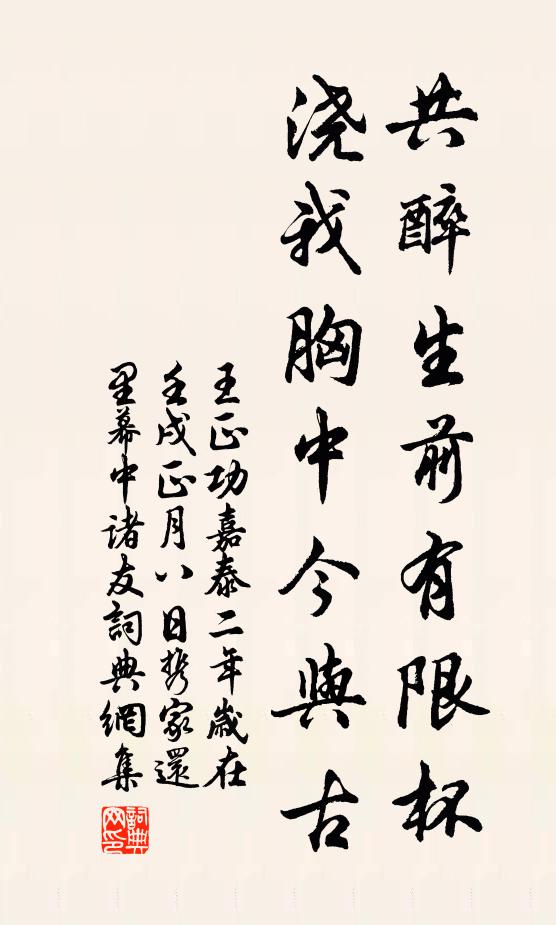 共醉生前有限杯
浇我胸中今與古
王正功嘉泰二年歲在
壬戌正月八日携家還
里幕中诸友詞典網集
詞典網印